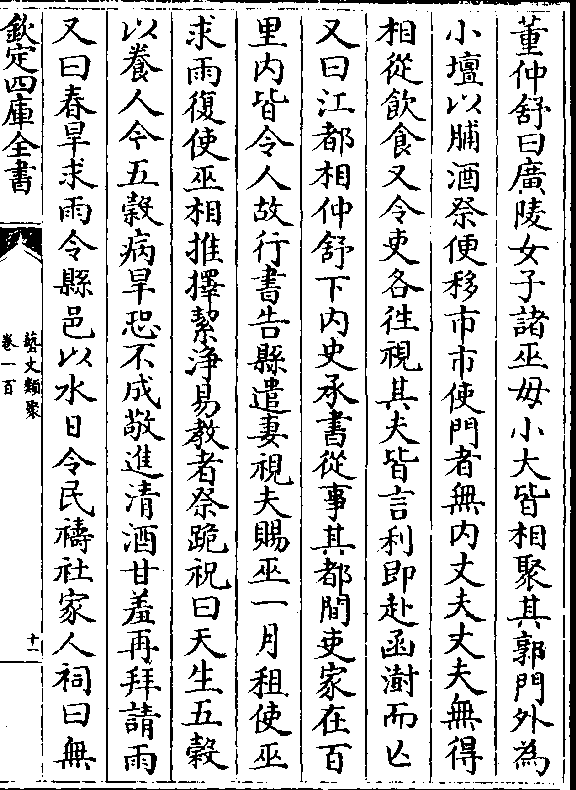 董仲舒曰廣陵女子諸巫毋小大皆相聚其郭門外為
小壇以脯酒祭便移市市使門者無内丈夫丈夫無得
相從飲食又令吏各往視其夫皆言利即赴函澍而已
又曰江都相仲舒下内史承書從事其都間吏家在百
里内皆令人故行書告縣遣妻視夫賜巫一月租使巫
求雨復使巫相推擇絜淨易教者祭跪祝曰天生五穀
以養人今五穀病旱恐不成敬進清酒甘羞再拜請雨
又曰春旱求雨令縣邑以水日令民禱社家人祠曰無
欽定四庫全書
藝文類聚
卷一百
十一